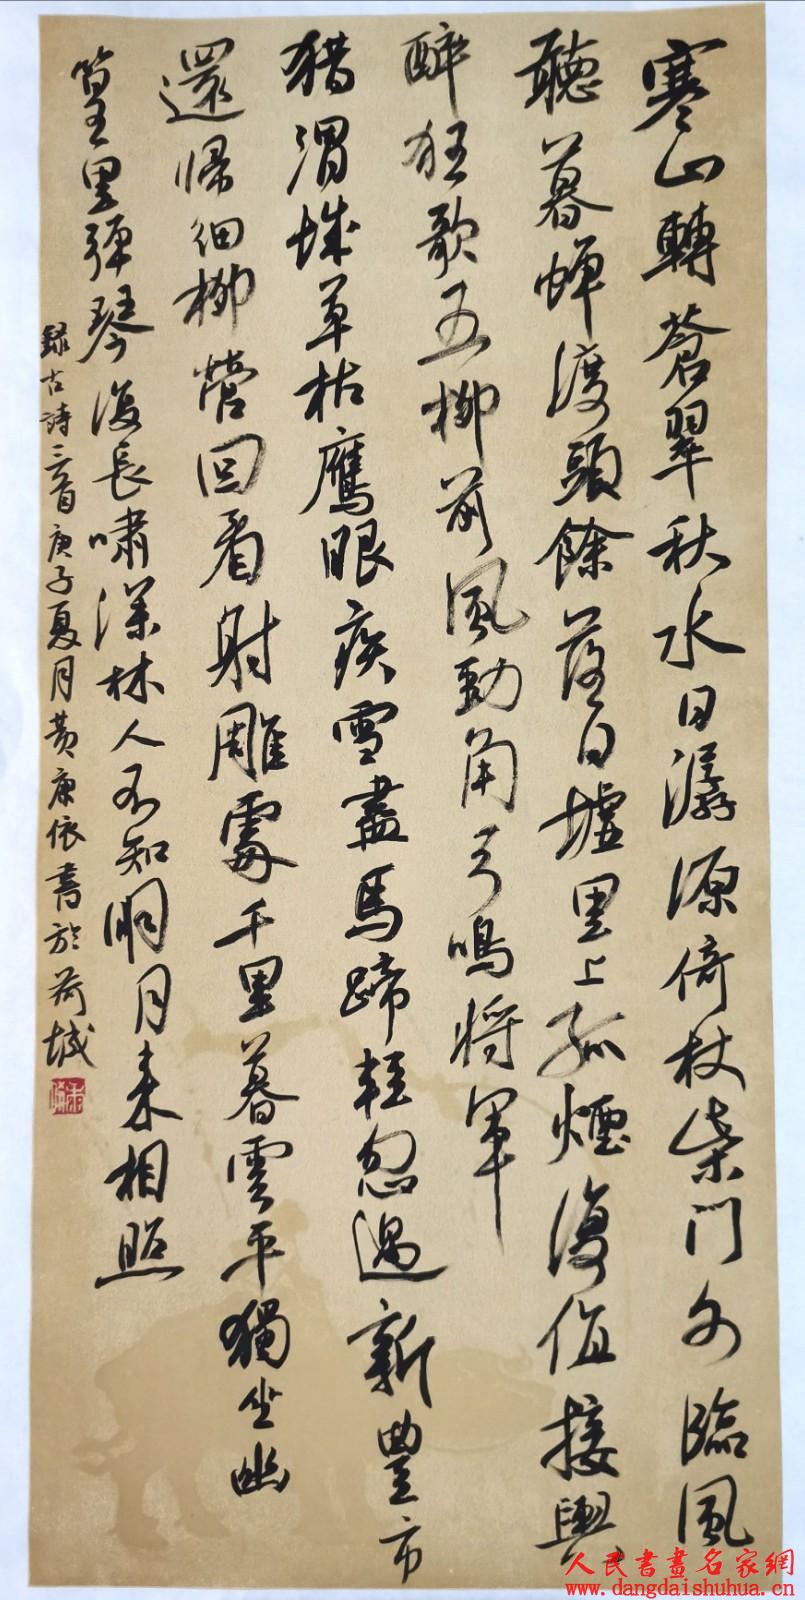 寒山轉蒼翠秋水日潺湲倚杖柴門外臨風
聽暮蟬渡頭餘落日墟里上孤煙復值接輿
醉狂歌五柳前風勁角弓鳴將軍
猎渭城草枯鷹眼疾雪盡馬蹄輕忽過新豐市
還歸細柳營回看射雕處千里暮雲平獨坐幽
篁里彈琴復長嘯深林人不知明月來相照
錄古詩三首庚子夏月黄康依書於荷城
人民書畫名家網
www.dangdaishuhua.cn